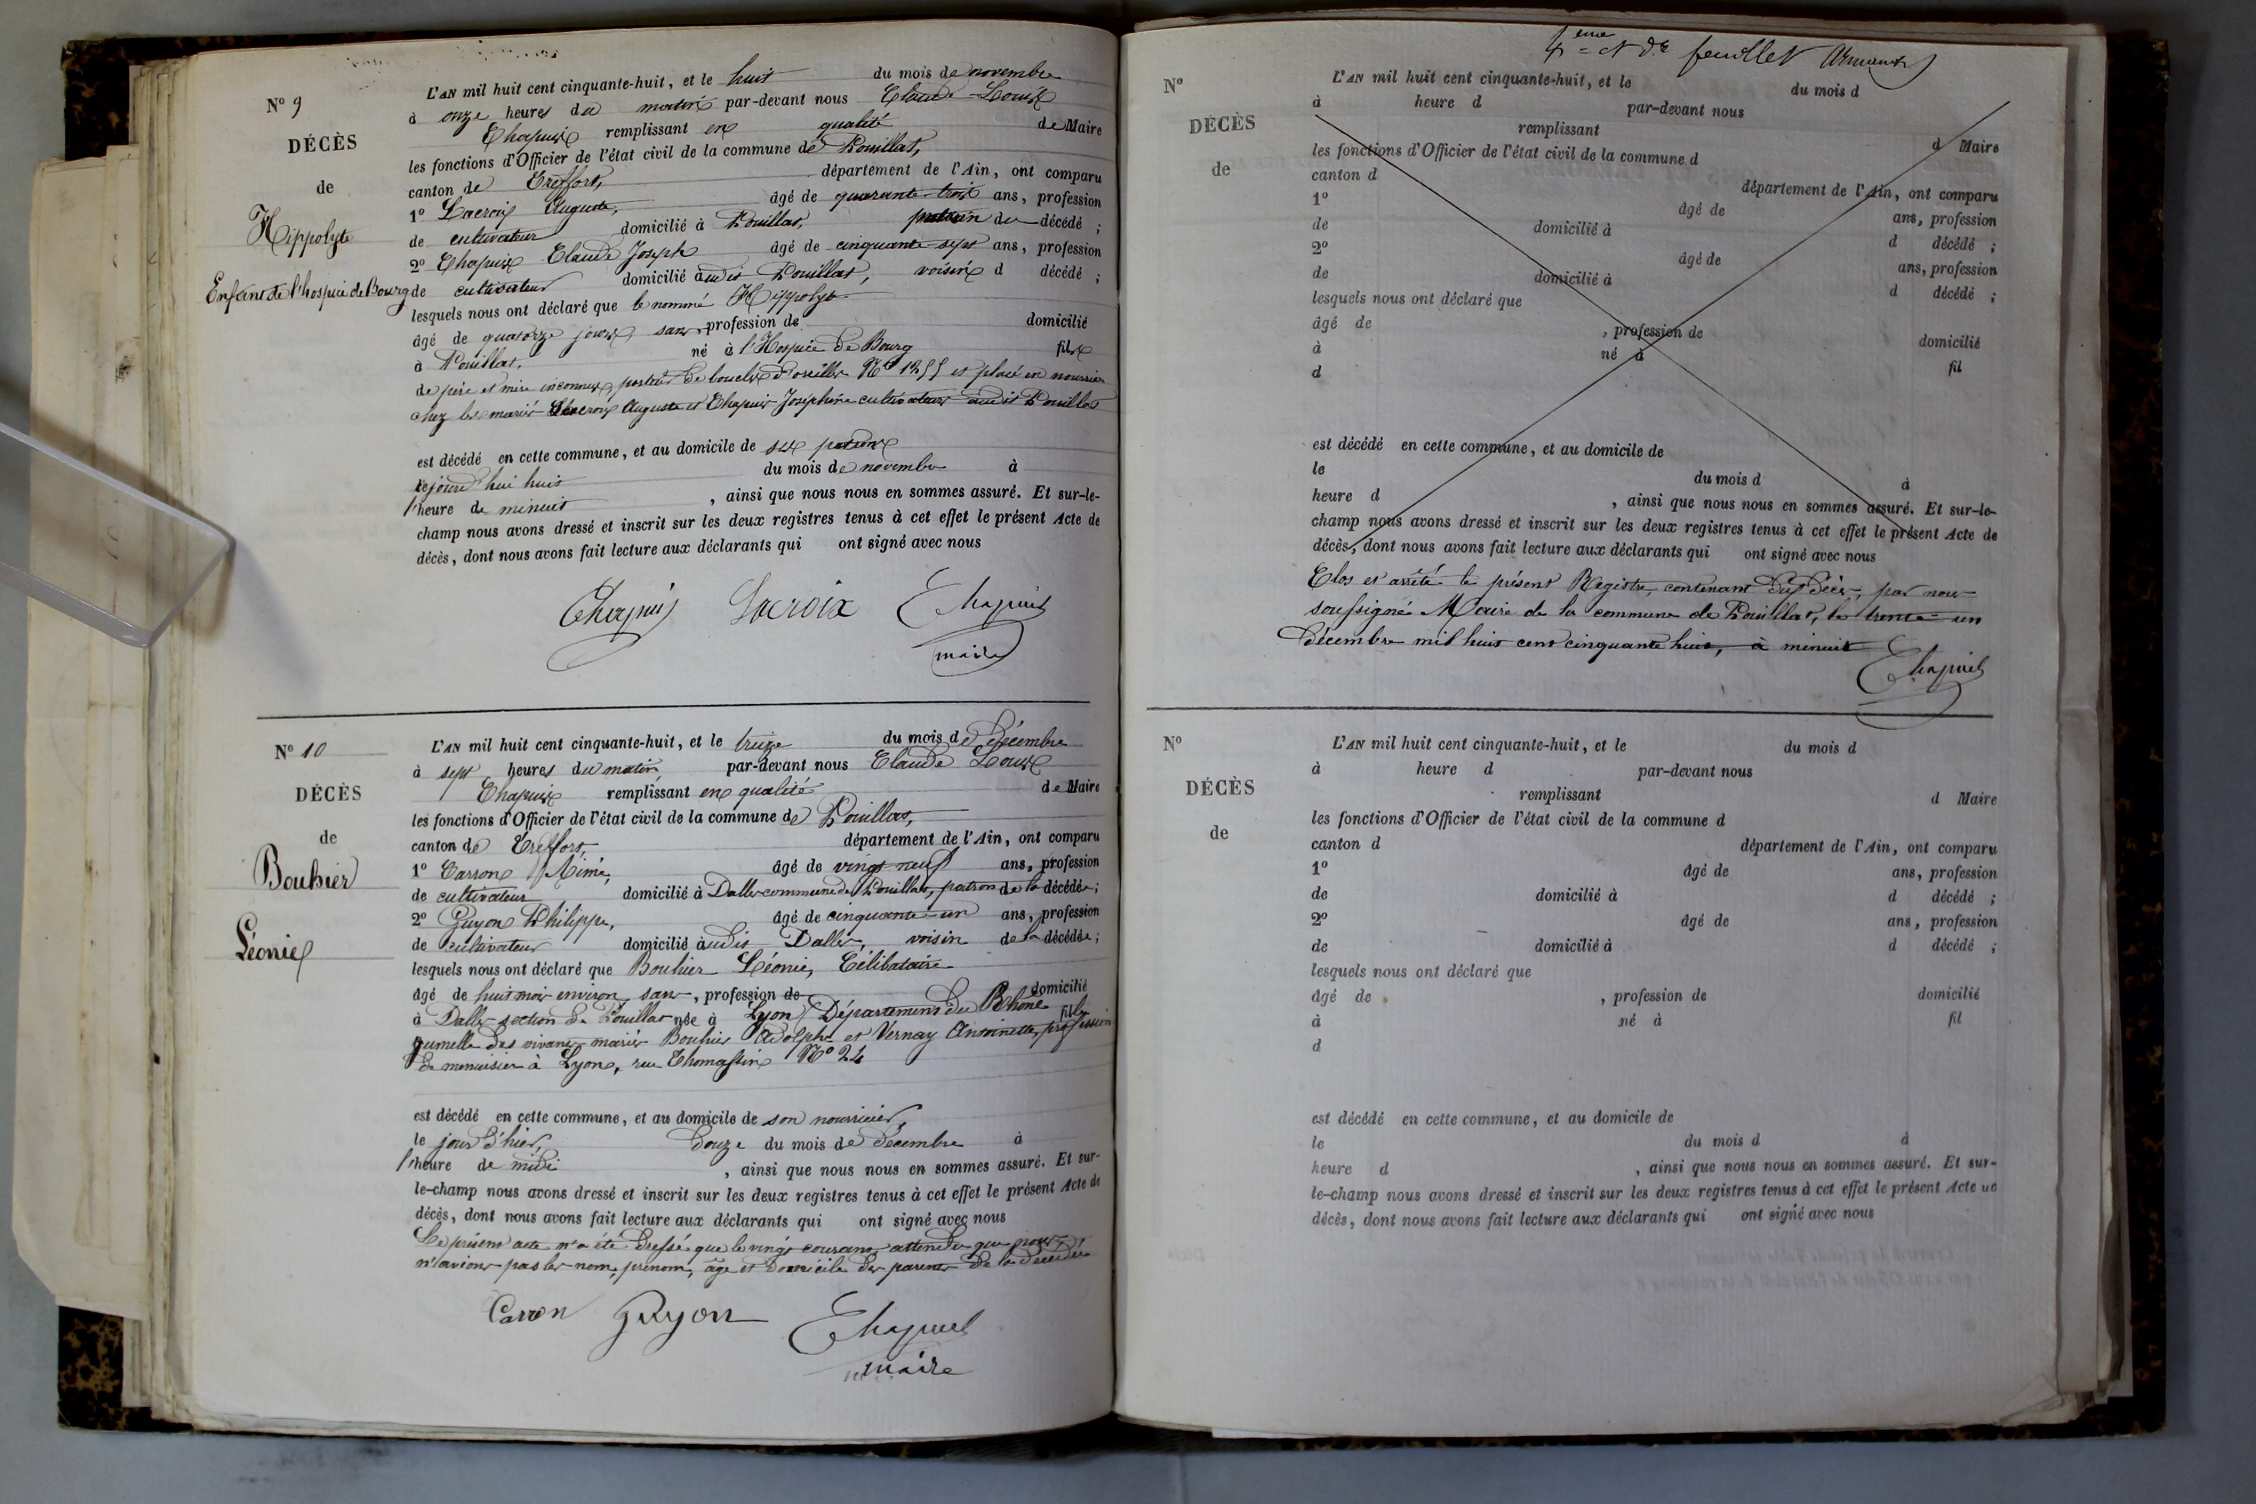 N° 9
DÉCÈS
de
Hippolyte
Enfant de l'hospice de Bourg
L'AN mil huit cent cinquante-huit, et le huit du mois de novembre
à onze heures du matin par-devant nous Claude Louis
Chapuis remplissant en qualité de Maire
les fonctions d'Officier de l'état civil de la commune de Pouillat,
canton de Treffort, département de l'Ain, ont comparu
1° Lacroix Auguste, âgé de quarante trois ans, profession
de cultivateur domicilié à Pouillat, patron du décédé ;
2° Chapuis Claude Joseph âgé de cinquante sept ans, profession
de cultivateur domicilié audit Pouillat, voisin d décédé ;
lesquels nous ont déclaré que le nommé Hippolyte
âgé de quatorze jours, sans profession de domicilié
à Pouillat, né à l'Hospice de Bourg fils
de père et mère inconnus, portant de boucles d'oreilles N° 1255 et placé en nourrice
chez les mariés Lacroix Auguste et Chapuis Joséphine cultivateurs audit Pouillat
est décédé en cette commune, et au domicile de ses patrons
cejourd'hui huit du mois de novembre à
l'heure de minuit , ainsi que nous nous en sommes assuré. Et sur-le-
champ nous avons dressé et inscrit sur les deux registres tenus à cet effet le présent Acte de
décès, dont nous avons fait lecture aux déclarants qui ont signé avec nous
Chapuis Lacroix Chapuis
maire
N° 10
DÉCÈS
de
Bouhier
Léonie
L'AN mil huit cent cinquante-huit, et le treize du mois de Décembre
à sept heures du matin par-devant nous Claude Louis
Chapuis remplissant en qualité de Maire
les fonctions d'Officier de l'état civil de la commune de Pouillat,
canton de Treffort, département de l'Ain, ont comparu
1° Carron Aimé, âgé de vingt neuf ans, profession
de cultivateur domicilié à Dalles commune de Pouillat, patron de la décédée ;
2° Guyon Philippe, âgé de cinquante un ans, profession
de cultivateur domicilié audit Dalles, voisin de la décédée ;
lesquels nous ont déclaré que Bouhier Léonie, Célibataire
âgé de huit mois environ, sans , profession de domicilié
à Dalles section de Pouillat née à Lyon Département du Rhône fille
jumelle des vivants mariés Bouhier Adolphe et Vernay Antoinette, profession
de menuisier à Lyon, rue Thomassin N° 24
est décédé en cette commune, et au domicile de son nourricier,
le jour d'hier, douze du mois de décembre à
l'heure de midi , ainsi que nous nous en sommes assuré. Et sur-
le-champ nous avons dressé et inscrit sur les deux registres tenus à cet effet le présent Acte de
décès, dont nous avons fait lecture aux déclarants qui ont signé avec nous
Le présent acte n'a été dressé que le vingt courant, attendu que nous
n'avions pas les nom, prénom, âge et domicile des parents de la décédée
Caron Guyon Chapuis
maire
4ème et der feuillet
N°
DÉCÈS
de
L'AN mil huit cent cinquante-huit, et le du mois d
à heure d par-devant nous
remplissant d Maire
les fonctions d'Officier de l'état civil de la commune d
canton d département de l'Ain, ont comparu
1° âgé de ans, profession
de domicilié à d décédé ;
2° âgé de ans, profession
de domicilié à d décédé ;
lesquels nous ont déclaré que
âgé de , profession de domicilié
à né à fil
d
est décédé en cette commune, et au domicile de
le du mois d à
heure d , ainsi que nous nous en sommes assuré. Et sur-le-
champ nous avons dressé et inscrit sur les deux registres tenus à cet effet le présent Acte de
décès, dont nous avons fait lecture aux déclarants qui ont signé avec nous
Clos et arrêté le présent Registre, contenant dix Décès, par nous
soussigné Maire de la commune de Pouillat, le trente-un
décembre mil huit cent cinquante huit, à minuit
Chapuis
N°
DÉCÈS
de
L'AN mil huit cent cinquante-huit, et le du mois d
à heure d par-devant nous
remplissant d Maire
les fonctions d'Officier de l'état civil de la commune d
canton d département de l'Ain, ont comparu
1° âgé de ans, profession
de domicilié à d décédé ;
2° âgé de ans, profession
de domicilié à d décédé ;
lesquels nous ont déclaré que
âgé de , profession de domicilié
à né à fil
d
est décédé en cette commune, et au domicile de
le du mois d à
heure d , ainsi que nous nous en sommes assuré. Et sur-
le-champ nous avons dressé et inscrit sur les deux registres tenus à cet effet le présent Acte de
décès, dont nous avons fait lecture aux déclarants qui ont signé avec nous